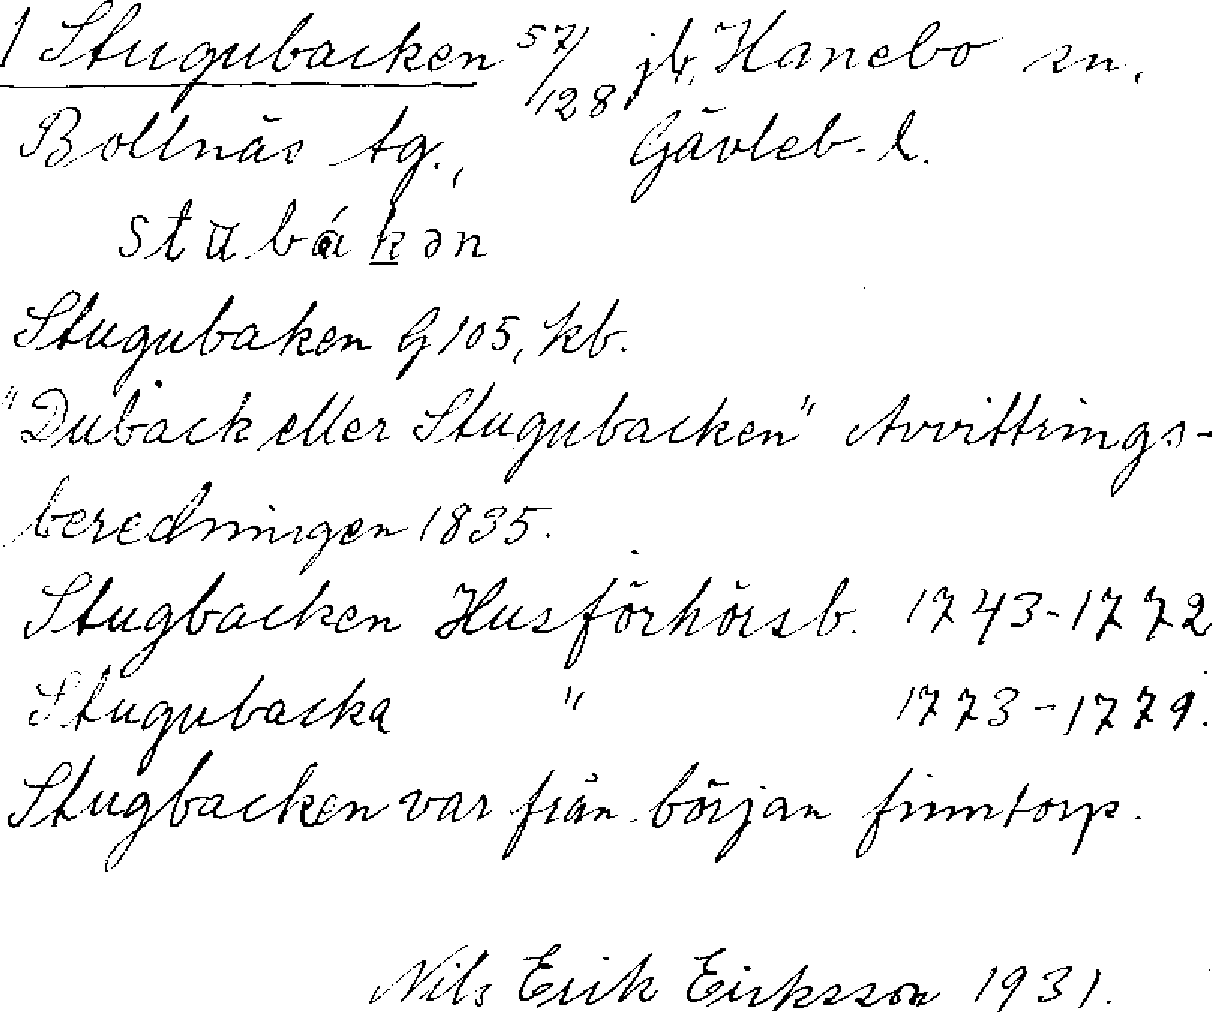 1 Stugubacken 57/128 jb, Hanebo sn.
Bollnäs tg., Gävleb. l.
stubákən
Stugubaken G 105, kb.
"Duback eller Stugubacken" Avvittrings-
beredningen 1835.
Stugbacken Husförhörsb. 1743-1772
Stugubacka " 1773-1779.
Stugbacken var från början finntorp.
Nils Erik Eriksson 1931.